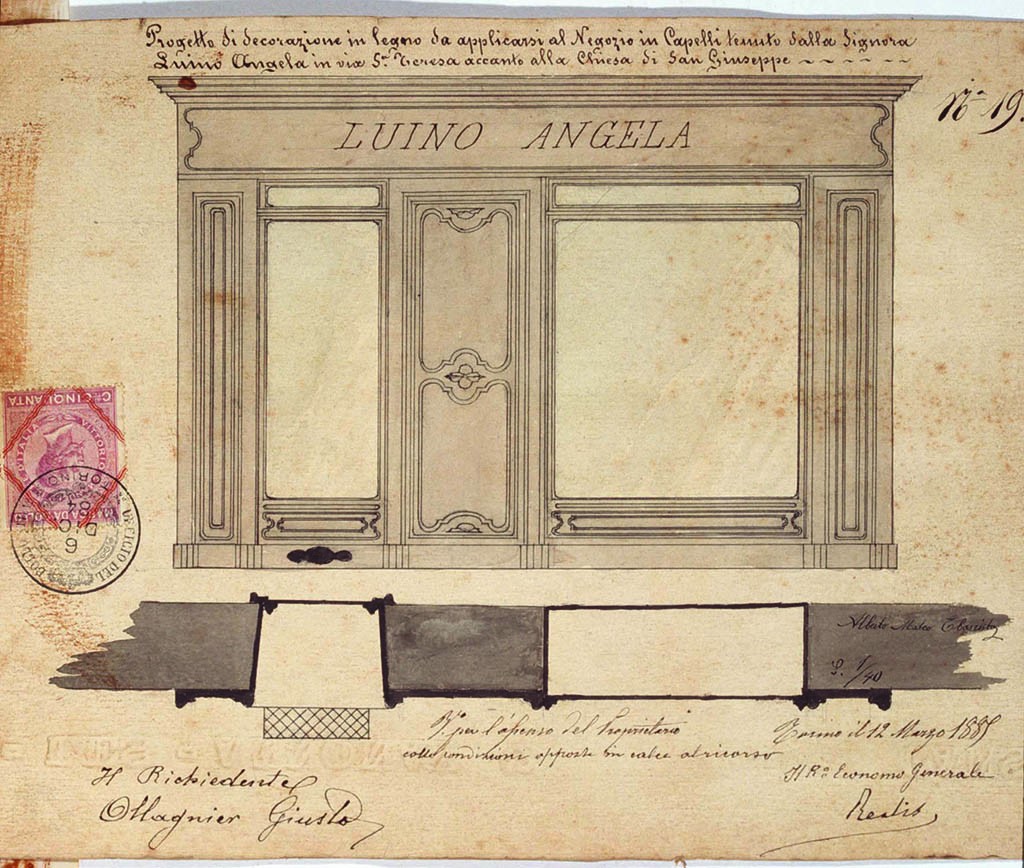 Progetto di decorazione in legno da applicarsi al Negozio in Capelli tenuto dalla Signora
Luino Angela in via S.ta Teresa accanto alla Chiesa di San Giuseppe
N.º 19.
LUINO ANGELA
C.mi CINQUANTA
D'ITALIA VITTORIO
TORINO
UFFICIO DEL BOLLO
6
DIC
84
S. 1/40
V.º per l'assenso del Proprietario
colle condizioni apposte in calce al ricorso
Torino il 12 Marzo 1885
Il R.º Economo Generale
Realis
Il Richiedente
Magnier Giusto